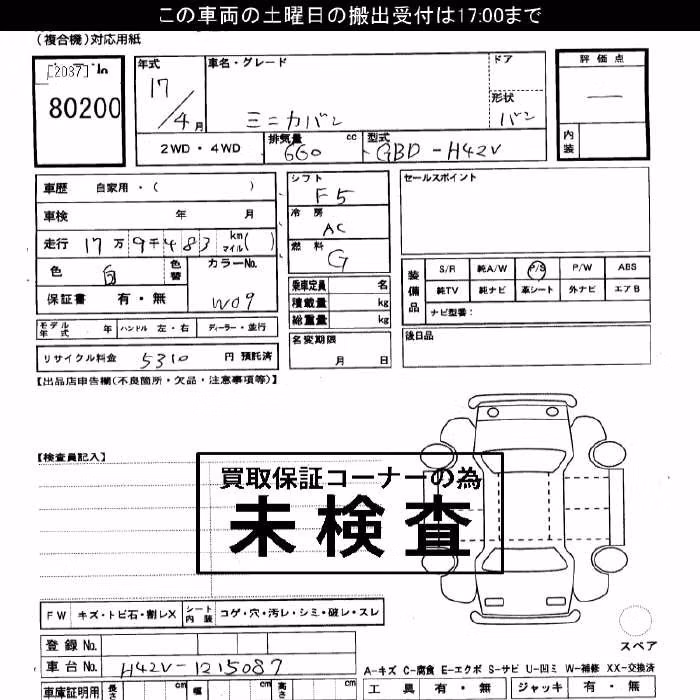 この車両の土曜日の搬出受付は17:00まで
(複合機)対応用紙
[2087] In
80200
年式 17/4月
車名・グレード ミニカバン
ドア
形状 バン
評価点 —
内装
2WD・4WD
排気量 660 cc
型式 GBD-H42V
車歴 自家用・( )
車検 年 月
走行 17万9千483 km マイル( )
色 白 色替
カラーNo. W09
保証書 有・無
モデル年式 年 ハンドル 左・右 ディーラー・並行
リサイクル料金 5310 円 預託済
シフト F5
冷房 AC
燃料 G
乗車定員 名
積載量 kg
総重量 kg
名変期限 月 日
セールスポイント
装備品
S/R 純A/W P/S P/W ABS
純TV 純ナビ 革シート 外ナビ エアB
ナビ型番:
後日品
【出品店申告欄(不良箇所・欠品・注意事項等)】
【検査員記入】
買取保証コーナーの為
未検査
FW キズ・トビ石・割レX シート内装 コゲ・穴・汚レ・シミ・破レ・スレ
登録No.
車台No. H42V-1215087
車庫証明用 長さ cm 幅 cm 高さ cm
スペア
A-キズ C-腐食 E-エクボ S-サビ U-凹ミ W-補修 XX-交換済
工具 有・無 ジャッキ 有・無